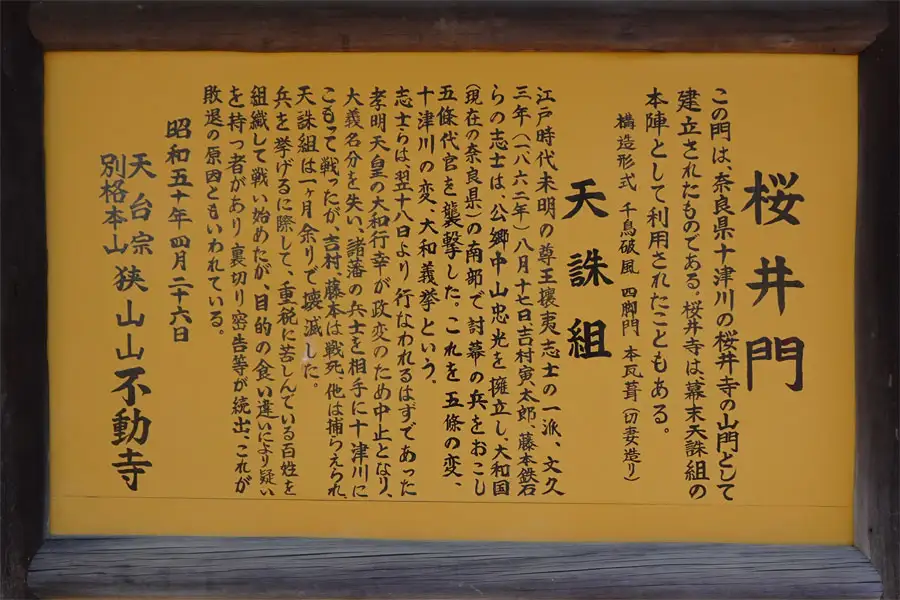 桜井門
この門は、奈良県十津川の桜井寺の山門として
建立されたものである。桜井寺は、幕末天誅組の
本陣として利用されたこともある。
構造形式 千鳥破風 四脚門 本瓦葺(切妻造り)
天誅組
江戸時代末明の尊王攘夷志士の一派、文久
三年(一八六二年)八月十七日吉村寅太郎、藤本鉄石
らの志士は、公郷中山忠光を擁立し、大和国
(現在の奈良県)の南部で討幕の兵をおこし
五條代官を襲撃した。これを五條の変、
十津川の変、大和義挙という。
志士らは翌十八日より行なわれるはずであった
孝明天皇の大和行幸が政変のため中止となり、
大義名分を失い、諸藩の兵士を相手に十津川に
こもって戦ったが、吉村、藤本は戦死、他は捕らえられ、
天誅組は一ヶ月余りで壊滅した。
兵を挙げるに際して、重税に苦しんでいる百姓を
組織して戦い始めたが、目的の食い違いにより疑い
を持つ者があり裏切り密告等が続出、これが
敗退の原因ともいわれている。
昭和五十年四月二十六日
天台宗
別格本山 狭山山不動寺